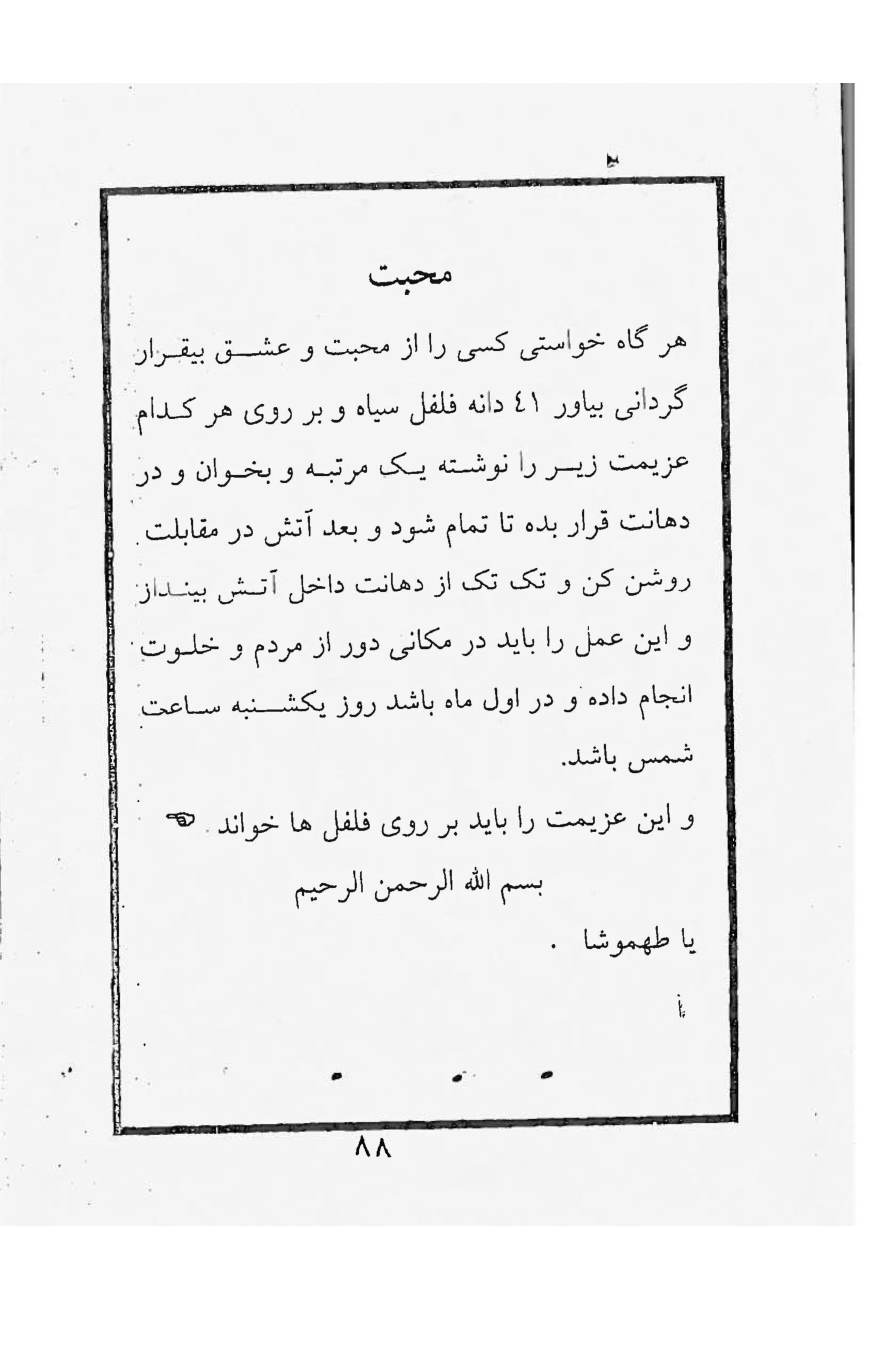 محبت
هر گاه خواستی کسی را از محبت و عشق بیقرار
گردانی بیاور ٤١ دانه فلفل سیاه و بر روی هر کدام
عزیمت زیر را نوشته یک مرتبه و بخوان و در
دهانت قرار بده تا تمام شود و بعد آتش در مقابلت
روشن کن و تک تک از دهانت داخل آتش بینداز
و این عمل را باید در مکانی دور از مردم و خلوت
انجام داده و در اول ماه باشد روز یکشنبه ساعت
شمس باشد.
و این عزیمت را باید بر روی فلفل ها خواند ☜
بسم الله الرحمن الرحیم
یا طهموشا .
٨٨